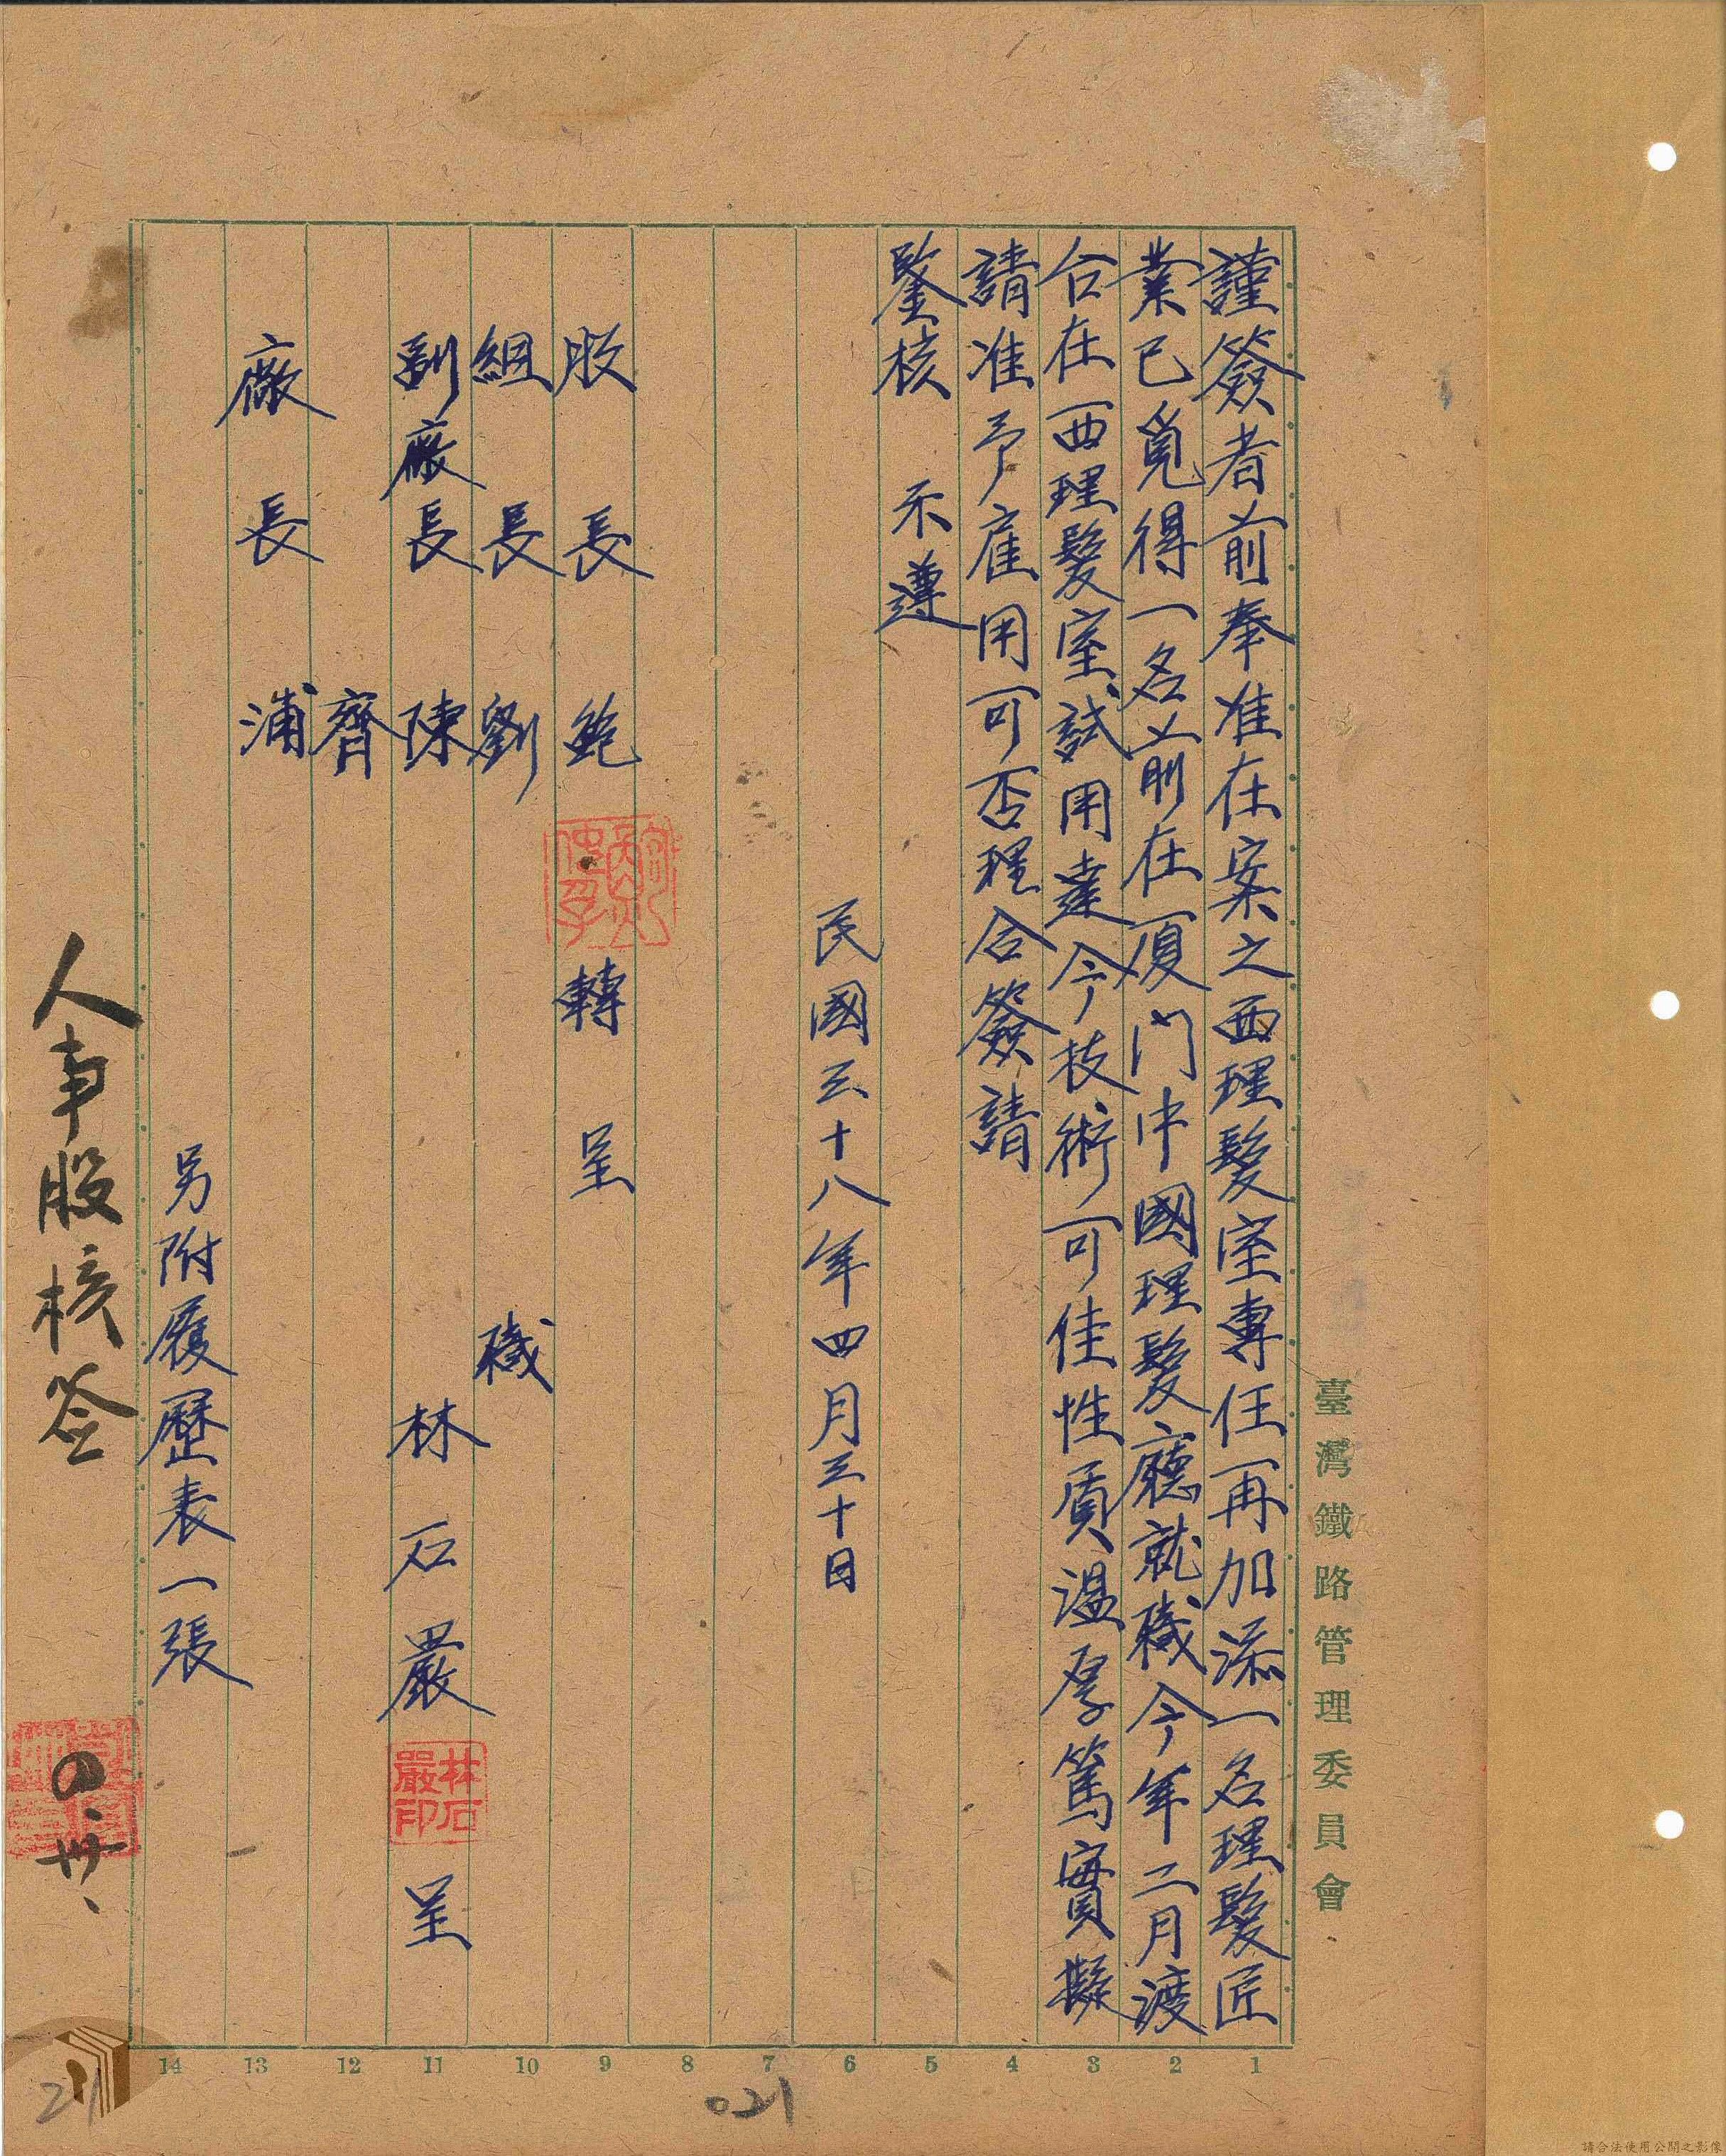 臺灣鐵路管理委員會
謹簽者前奉准在案之西理髮室專任再加添一名理髮匠
業已覓得一名前在厦門中國理髮廳就職今年二月渡
台在西理髮室試用達今技術可佳性質溫厚篤實擬
請准予雇用可否理合簽請
鑒核 示遵
民國三十八年四月三十日
股長 鮑 轉呈
組長 劉 職
副廠長 陳 林石嚴 呈
林石嚴印
齊
廠長 浦
另附履歷表一張
人事股核签
四、卅、
14 13 12 11 10 9 8 7 6 5 4 3 2 1
021
21
請合法使用公開之影像